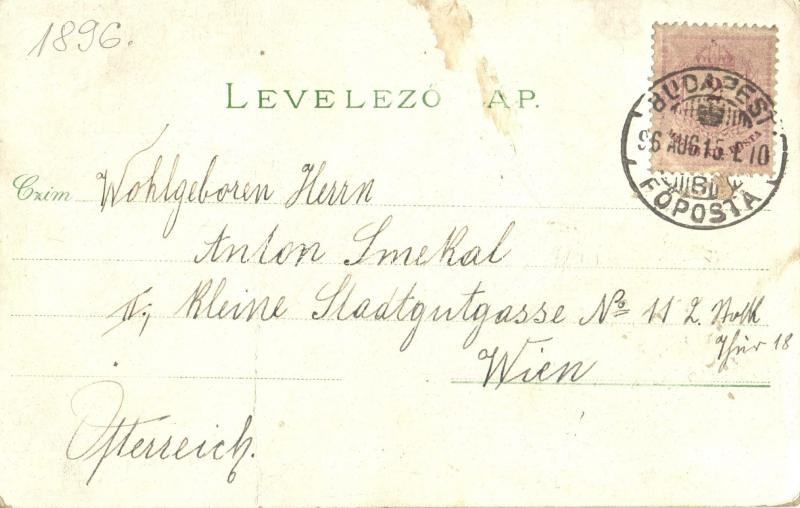 1896.
LEVELEZŐ AP.
BUDAPEST
96 AUG 15 E 10
B
FŐPOSTA
2
POSTA
Czim Wohlgeboren Herrn
Anton Smekal
II., Kleine Stadtgutgasse No 11 2. Stock
Thür 18
Wien
Österreich.